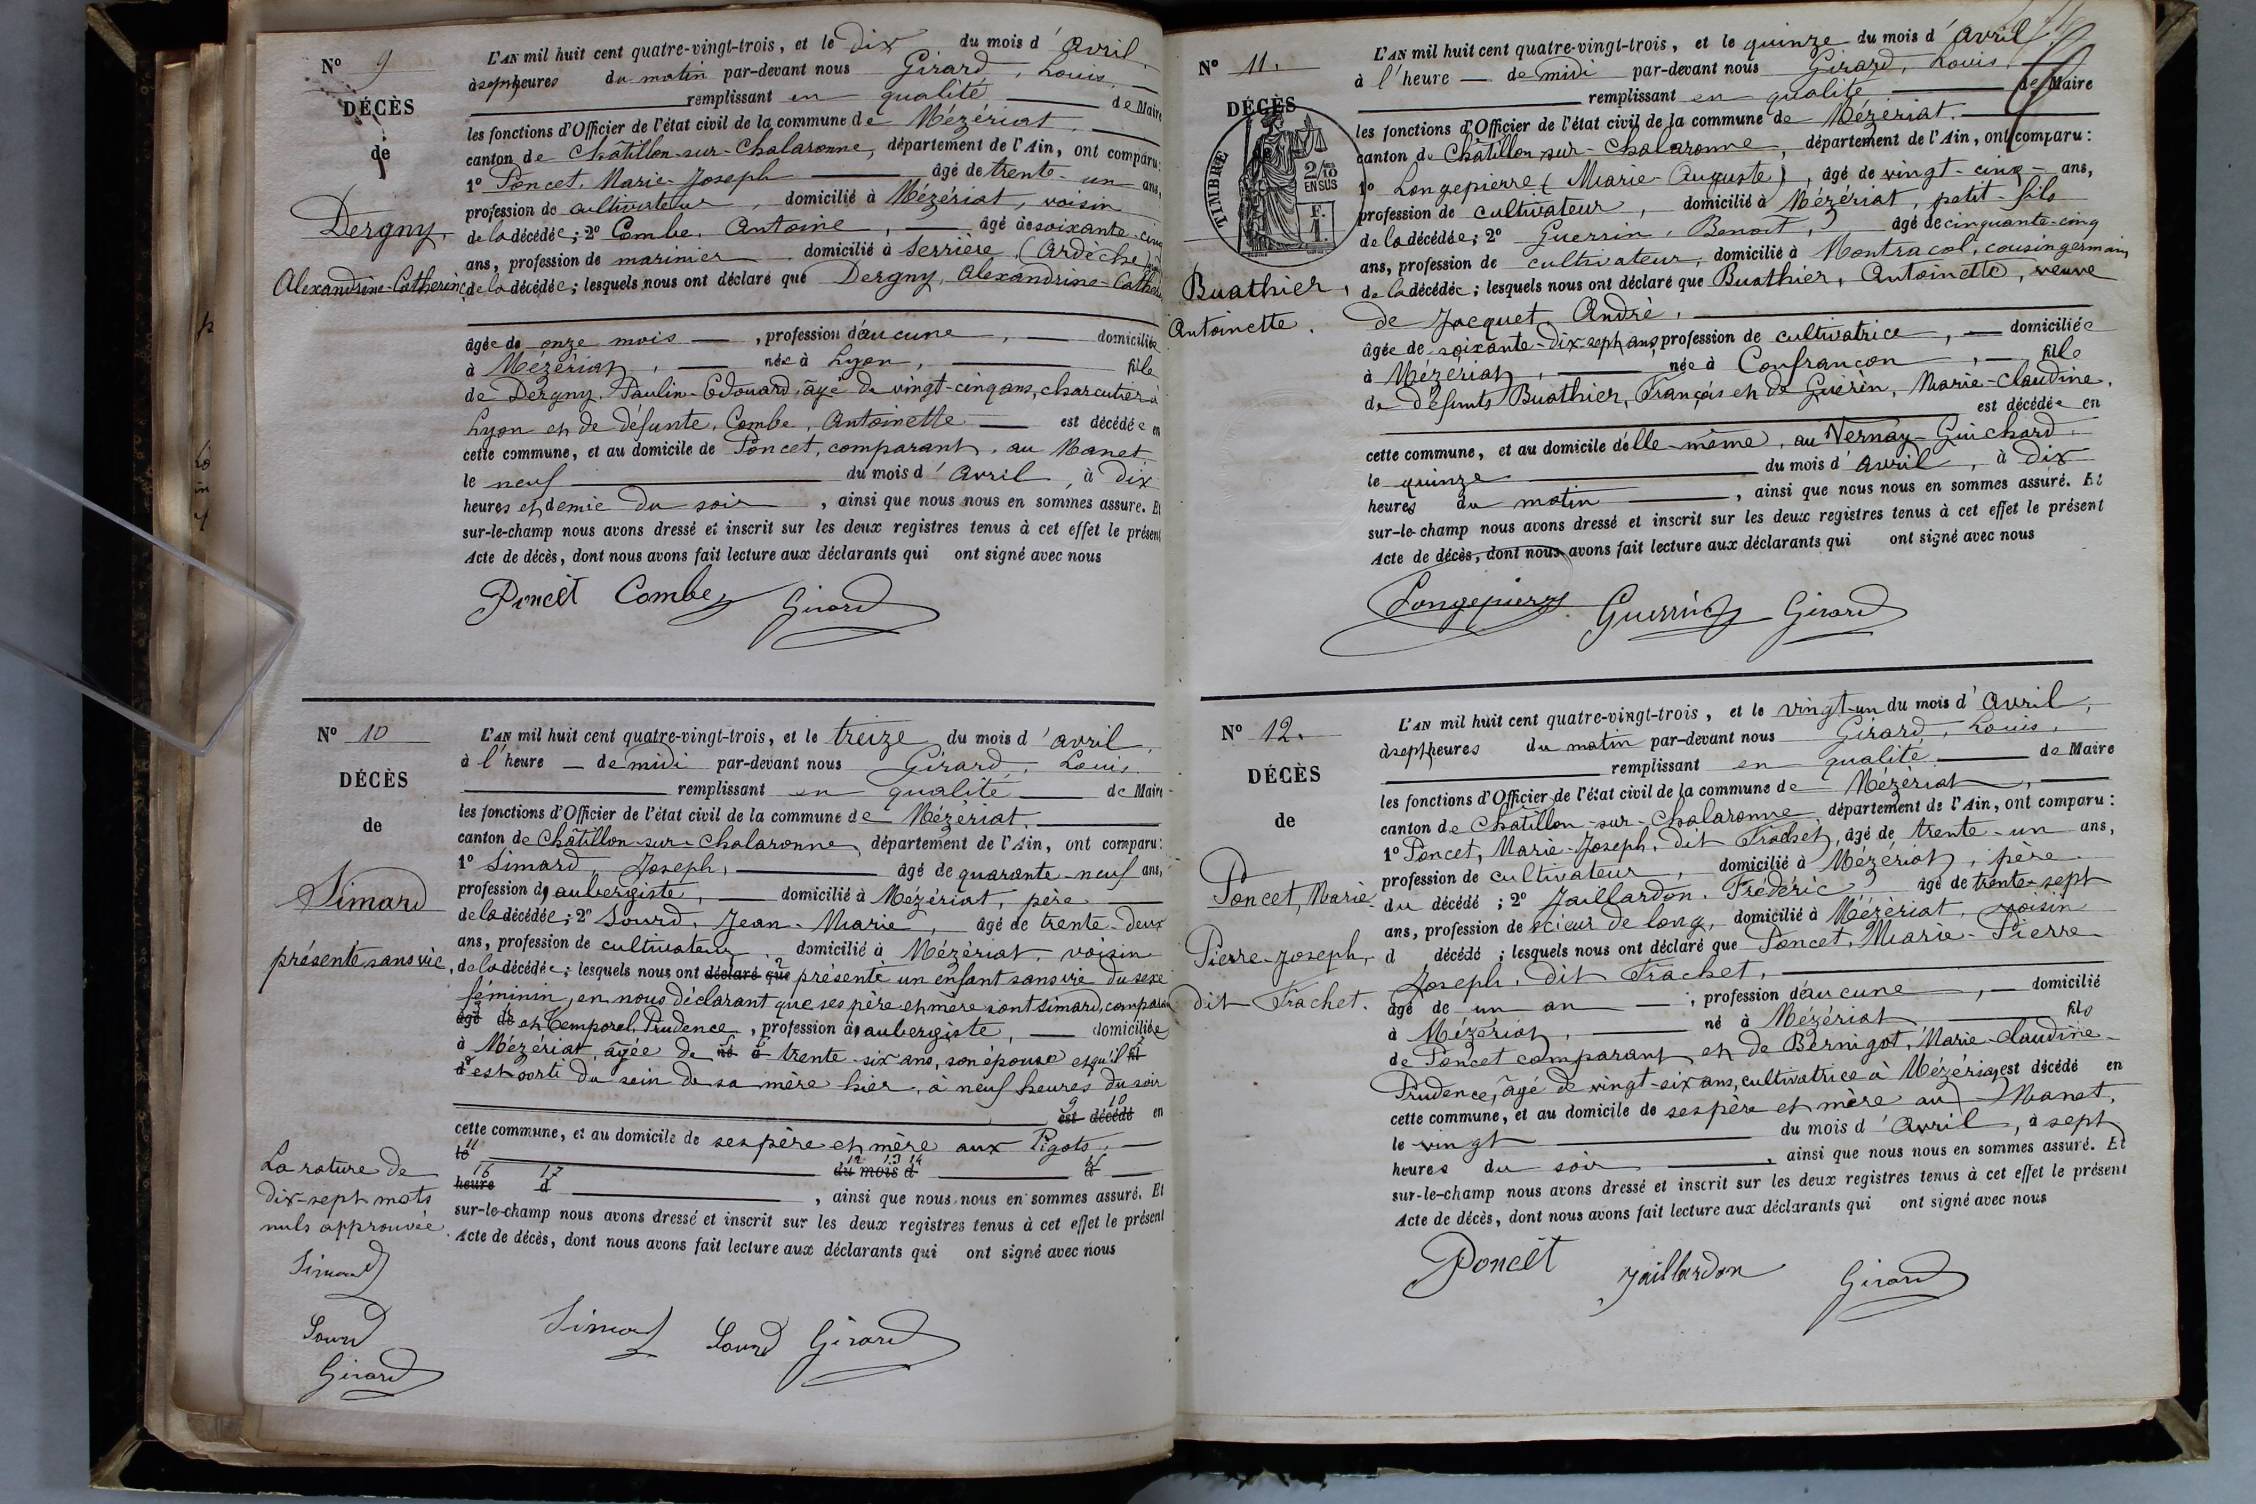 N° 9
DÉCÈS
de
Dergny,
Alexandrine-Catherine
L'AN mil huit cent quatre-vingt-trois, et le dix du mois d'avril,
à sept heures du matin par-devant nous Girard, Louis,
remplissant en qualité de Maire
les fonctions d'Officier de l'état civil de la commune de Mézériat.
canton de Châtillon-sur-Chalaronne, département de l'Ain, ont comparu:
1° Poncet, Marie-Joseph âgé de trente-un ans,
profession de cultivateur, domicilié à Mézériat, voisin
de la décédée; 2° Combe, Antoine, âgé de soixante-cinq
ans, profession de marinier, domicilié à Serrière (Ardèche)
de la décédée; lesquels nous ont déclaré que Dergny, Alexandrine-Catherine
âgée de onze mois, profession d'aucune, domiciliée
à Mézériat, née à Lyon, fille
de Dergny, Paulin-Edouard, âgé de vingt-cinq ans, charcutier à
Lyon et de défunte, Combe, Antoinette est décédée en
cette commune, et au domicile de Poncet, comparant, au Manet
le neuf du mois d'avril, à dix
heures et demie du soir, ainsi que nous nous en sommes assuré. Et
sur-le-champ nous avons dressé et inscrit sur les deux registres tenus à cet effet le présent
Acte de décès, dont nous avons fait lecture aux déclarants qui ont signé avec nous
Poncet Combe Girard
N° 10
DÉCÈS
de
Simard
présenté sans vie,
L'AN mil huit cent quatre-vingt-trois, et le treize du mois d'avril,
à l'heure de midi par-devant nous Girard, Louis
remplissant en qualité de Maire
les fonctions d'Officier de l'état civil de la commune de Mézériat.
canton de Châtillon-sur-Chalaronne, département de l'Ain, ont comparu:
1° Simard Joseph, âgé de quarante-neuf ans,
profession d'aubergiste, domicilié à Mézériat, père
de la décédée; 2° Sourd, Jean-Marie, âgé de trente-deux
ans, profession de cultivateur, domicilié à Mézériat, voisin
de la décédée; lesquels nous ont déclaré que présenté un enfant sans vie du sexe
féminin, en nous déclarant que ses père et mère sont Simard, comparant
âgé de et Temporal, Prudence, profession d'aubergiste, domiciliée
à Mézériat, âgée de né à trente-six ans, son épouse et qu'il fil
d est sorti du sein de sa mère hier, à neuf heures du soir
9 10
est décédé en
cette commune, et au domicile de ses père et mère aux Pigots,
11 le 12 13 14 du mois d' 15 à
16 17
heure d , ainsi que nous nous en sommes assuré. Et
sur-le-champ nous avons dressé et inscrit sur les deux registres tenus à cet effet le présent
Acte de décès, dont nous avons fait lecture aux déclarants qui ont signé avec nous
La rature de
dix-sept mots
nuls approuvée.
Simard
Sourd
Girard
Simard Sourd Girard
N° 11.
DÉCÈS
TIMBRE
2/10
EN SUS
F.
1.
Buathier,
Antoinette.
L'AN mil huit cent quatre-vingt-trois, et le quinze du mois d'avril
à l'heure de midi par-devant nous Girard, Louis,
remplissant en qualité de Maire
les fonctions d'Officier de l'état civil de la commune de Mézériat.
canton de Châtillon-sur-Chalaronne, département de l'Ain, ont comparu:
1° Longepierre (Marie-Auguste), âgé de vingt-cinq ans,
profession de cultivateur, domicilié à Mézériat, petit-fils
de la décédée; 2° Guerrin, Benoit, âgé de cinquante-cinq
ans, profession de cultivateur, domicilié à Montracol, cousin germain
de la décédée; lesquels nous ont déclaré que Buathier, Antoinette, veuve
de Jacquet André,
âgée de soixante-dix-sept ans, profession de cultivatrice, domiciliée
à Mézériat, née à Confrançon, fille
de défunts Buathier, François et de Guérin, Marie-Claudine.
est décédée en
cette commune, et au domicile d'elle-même, au Vernay-Guichard.
le quinze du mois d'avril, à dix
heures du matin, ainsi que nous nous en sommes assuré. Et
sur-le-champ nous avons dressé et inscrit sur les deux registres tenus à cet effet le présent
Acte de décès, dont nous avons fait lecture aux déclarants qui ont signé avec nous
Longepierre Guerrin Girard
N° 12.
DÉCÈS
de
Poncet, Marie-
Pierre-Joseph,
dit Frachet.
L'AN mil huit cent quatre-vingt-trois, et le vingt-un du mois d'avril,
à sept heures du matin par-devant nous Girard, Louis,
remplissant en qualité de Maire
les fonctions d'Officier de l'état civil de la commune de Mézériat,
canton de Châtillon-sur-Chalaronne, département de l'Ain, ont comparu:
1° Poncet, Marie-Joseph, dit Frachet, âgé de trente-un ans,
profession de cultivateur, domicilié à Mézériat, père
du décédé; 2° Jaillardon, Frédéric âgé de trente-sept
ans, profession de scieur de long, domicilié à Mézériat, voisin
d décédé; lesquels nous ont déclaré que Poncet, Marie-Pierre
Joseph, dit Frachet,
âgé de un an, profession d'aucune, domicilié
à Mézériat, né à Mézériat fils
de Poncet comparant et de Bernigot, Marie-Claudine-
Prudence, âgé de vingt-six ans, cultivatrice à Mézériat, est décédé en
cette commune, et au domicile de ses père et mère au Manet,
le vingt du mois d'avril, à sept
heures du soir, ainsi que nous nous en sommes assuré. Et
sur-le-champ nous avons dressé et inscrit sur les deux registres tenus à cet effet le présent
Acte de décès, dont nous avons fait lecture aux déclarants qui ont signé avec nous
Poncet Jaillardon Girard